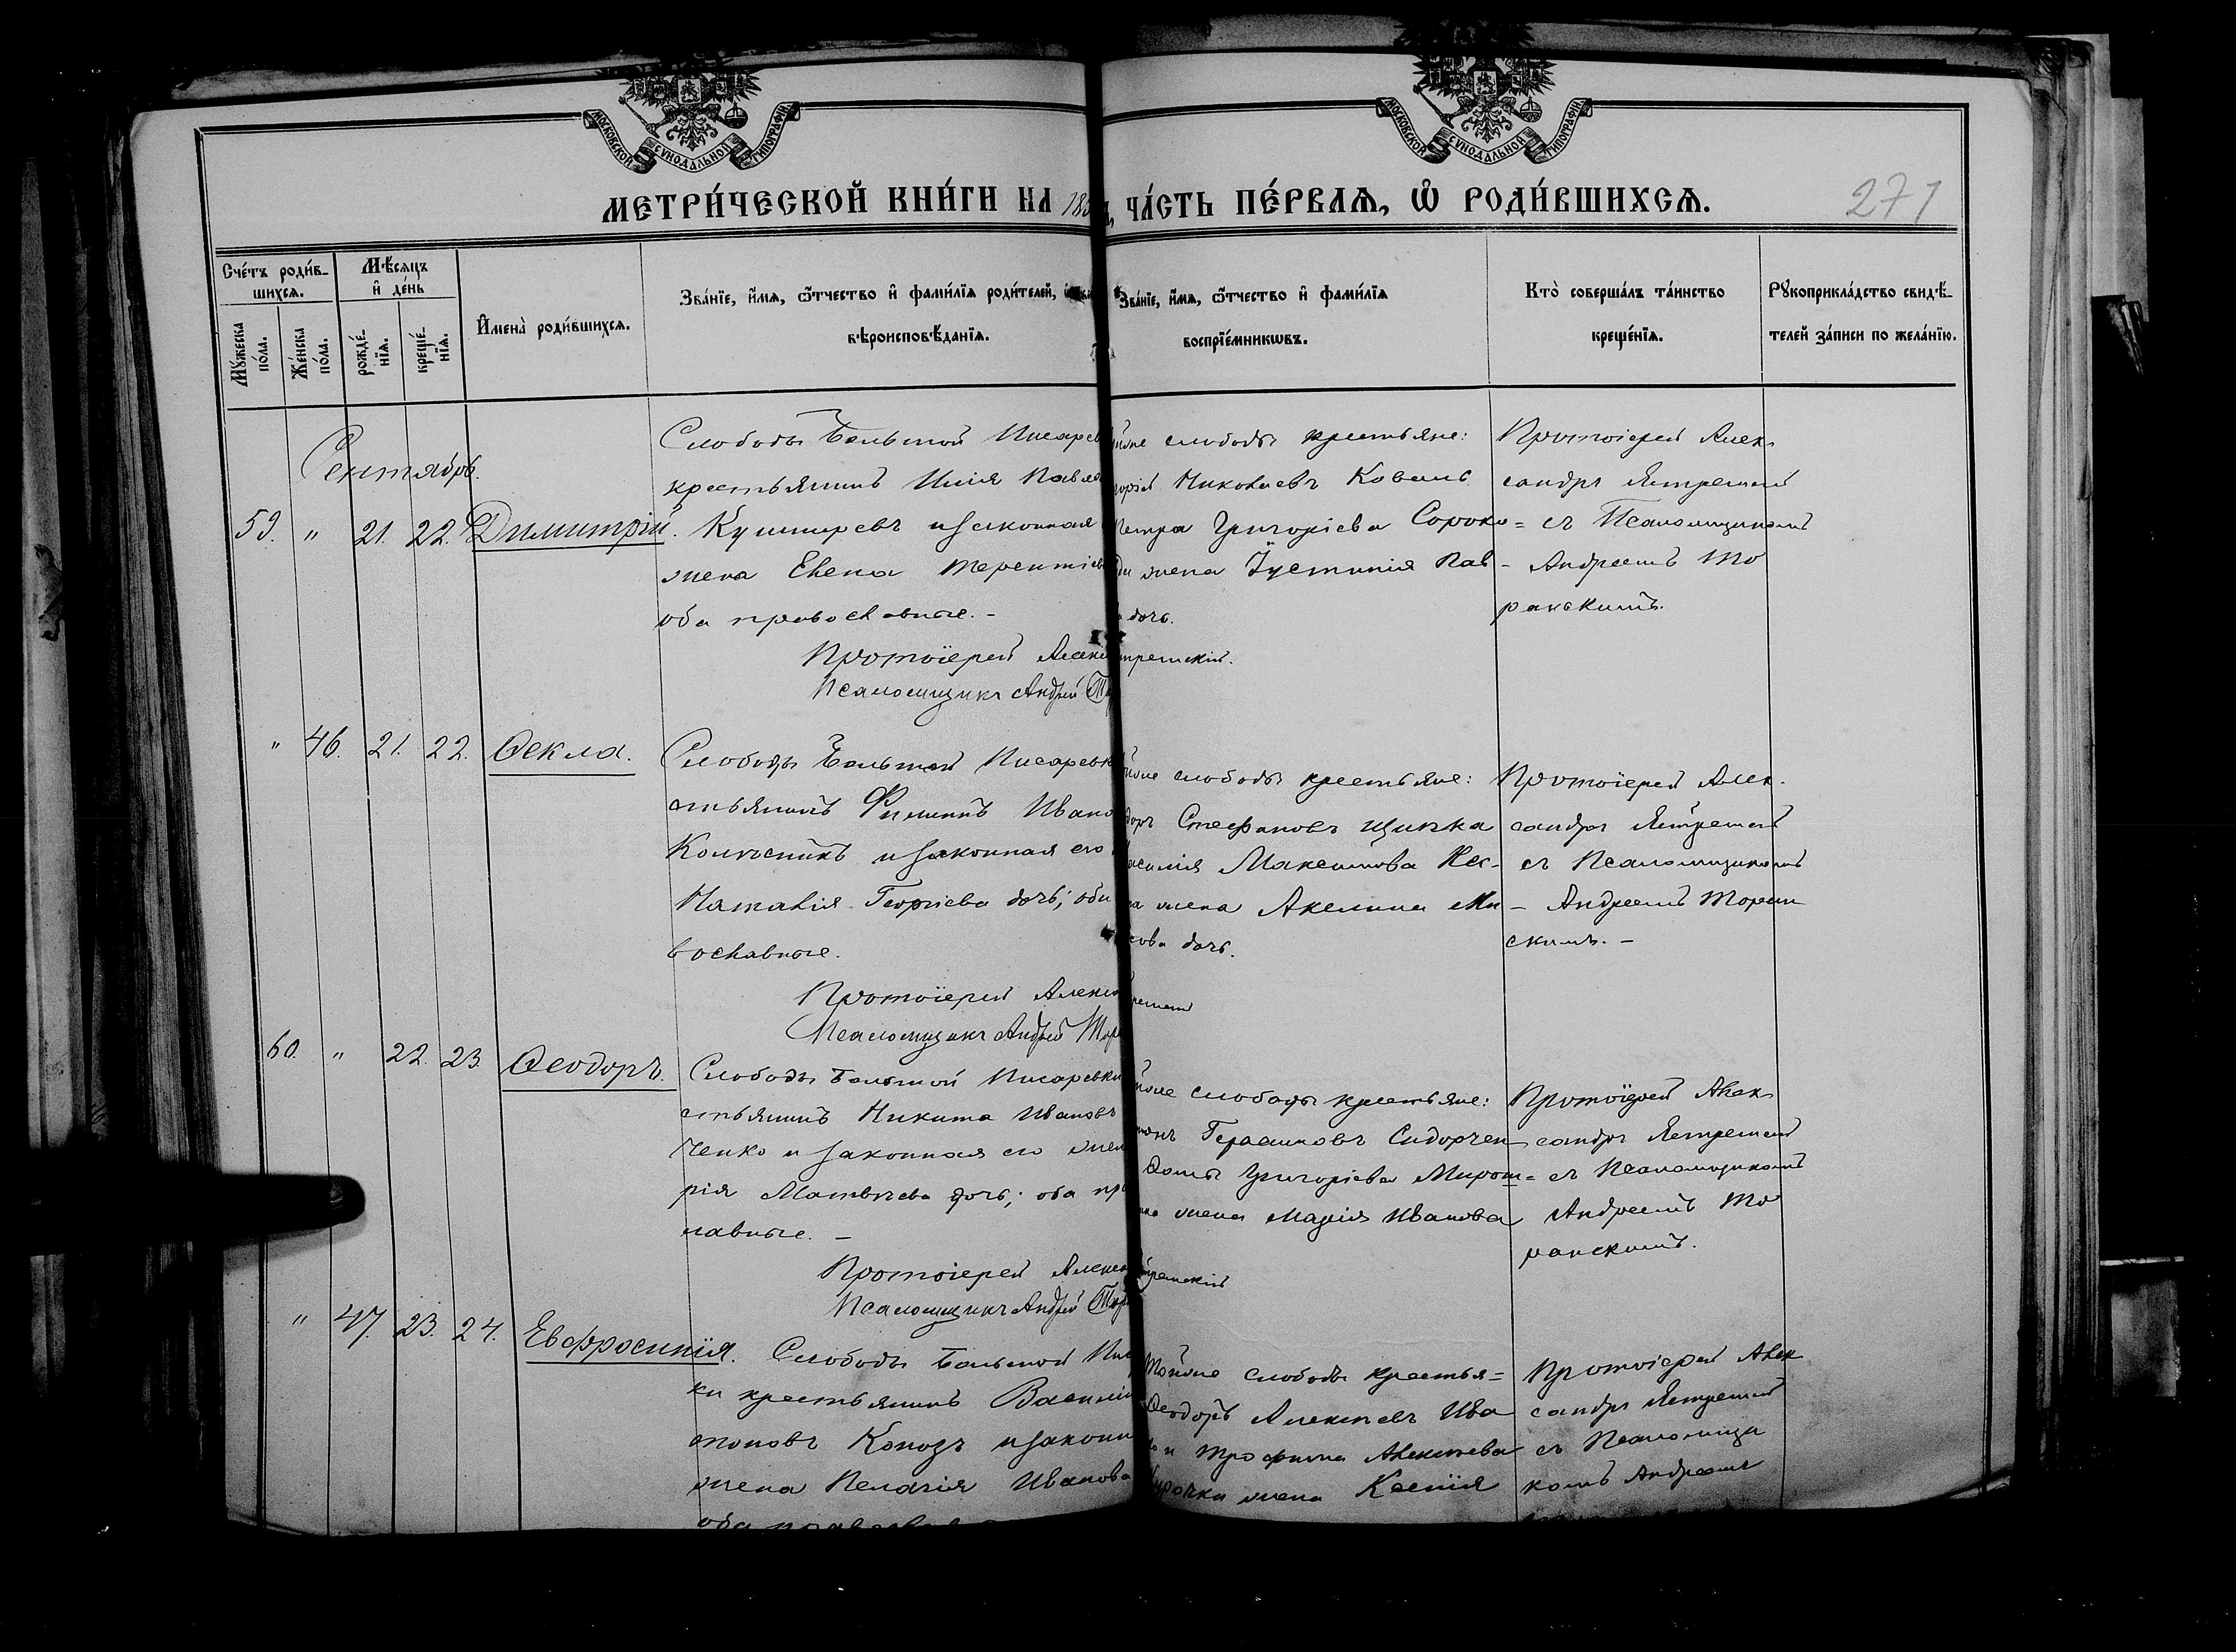 МОСКОВСКОЙ СѴНОДАЛЬНОЙ ТИПОГРАФІИ
МОСКОВСКОЙ СѴНОДАЛЬНОЙ ТИПОГРАФІИ
МЕТРИ́ЧЕСКОЙ КНИ́ГИ НА 18
ЧА́СТЬ ПЕ́РВАѦ, Ѡ҆ РОДИ́ВШИХСѦ.
271
Сче́тъ роди́в-
шихсѧ.
Мꙋ́жеска по́ла.
Же́нска по́ла.
Мѣ́сѧцъ
и҆ де́нь
рожде́-
нїѧ.
креще́-
нїѧ.
И҆мена̀ роди́вшихсѧ.
Зва́нїе, и҆́мѧ, ѻ҆́тчество и҆ фами́лїѧ роди́телей,
вѣроисповѣ́данїѧ.
Зва́нїе, и҆́мѧ, ѻ҆́тчество и҆ фами́лїѧ
воспрїе́мникѡвъ.
Кто̀ соверша́лъ та́инство
креще́нїѧ.
Рꙋкоприкла́дство свидѣ́-
телей за́писи по жела́нїю.
Сентябрь.
59. " 21. 22. Димитрій.
Слободы Большой Писарев
крестьянинъ Илія Павлов
Кушнревъ и законная
жена Елена Терентіев
оба православные. -
Протоіерей Алекса
Псаломщикъ Андрей То
слободы крестьяне:
Николаевъ Коваль
Петра Григоріева Сороко=
жена Іустинія Пав-
дочь.
Протоіерей Алек-
сандръ Ястремскій
съ Псаломщикомъ
Андреемъ То
ранскимъ.
" 46. 21. 22. Ѳекла.
Слободы Большой Писаревк
стьянинъ Филиппъ Ивано
Колѣсникъ и законная его
Наталія Георгіева дочь; оба
вославные.
Протоіерей Алекса
Псаломщикъ Андрей Тора
слободы крестьяне:
Стефановъ Щипка
Максимова
жена Акелина Ми-
дочь.
Протоіерей Алек-
сандръ Ястремскій
съ Псаломщикомъ
Андреемъ Торан
скимъ. -
60. " 22. 23. Ѳеодоръ.
Слободы Большой Писаревки
стьянинъ Никита Ивановъ
ченко и законная его жен
рія Матвѣева дочь; оба пр
лавные. -
Протоіерей Алекса
Псаломщикъ Андрей Тор
слободы крестьяне:
Герасимовъ Сидорчен
Ѳомы Григоріева Мирош=
жена Марія Иванова
Протоіерей Алек-
сандръ Ястремскій
съ Псаломщикомъ
Андреемъ То
ранскимъ.
" 47. 23. 24. Евфросинія.
Слободы Большой Пис
ки крестьянинъ Василій
тоновъ Конозъ и законн
жена Пелагія Иванова
оба
Тойже слободы крестья=
Ѳеодоръ Алексѣевъ Ива
и Трофима Алексѣева
жена Ксенія
Протоіерей Алек
сандръ Ястремскій
съ Псаломщи
комъ Андреемъ